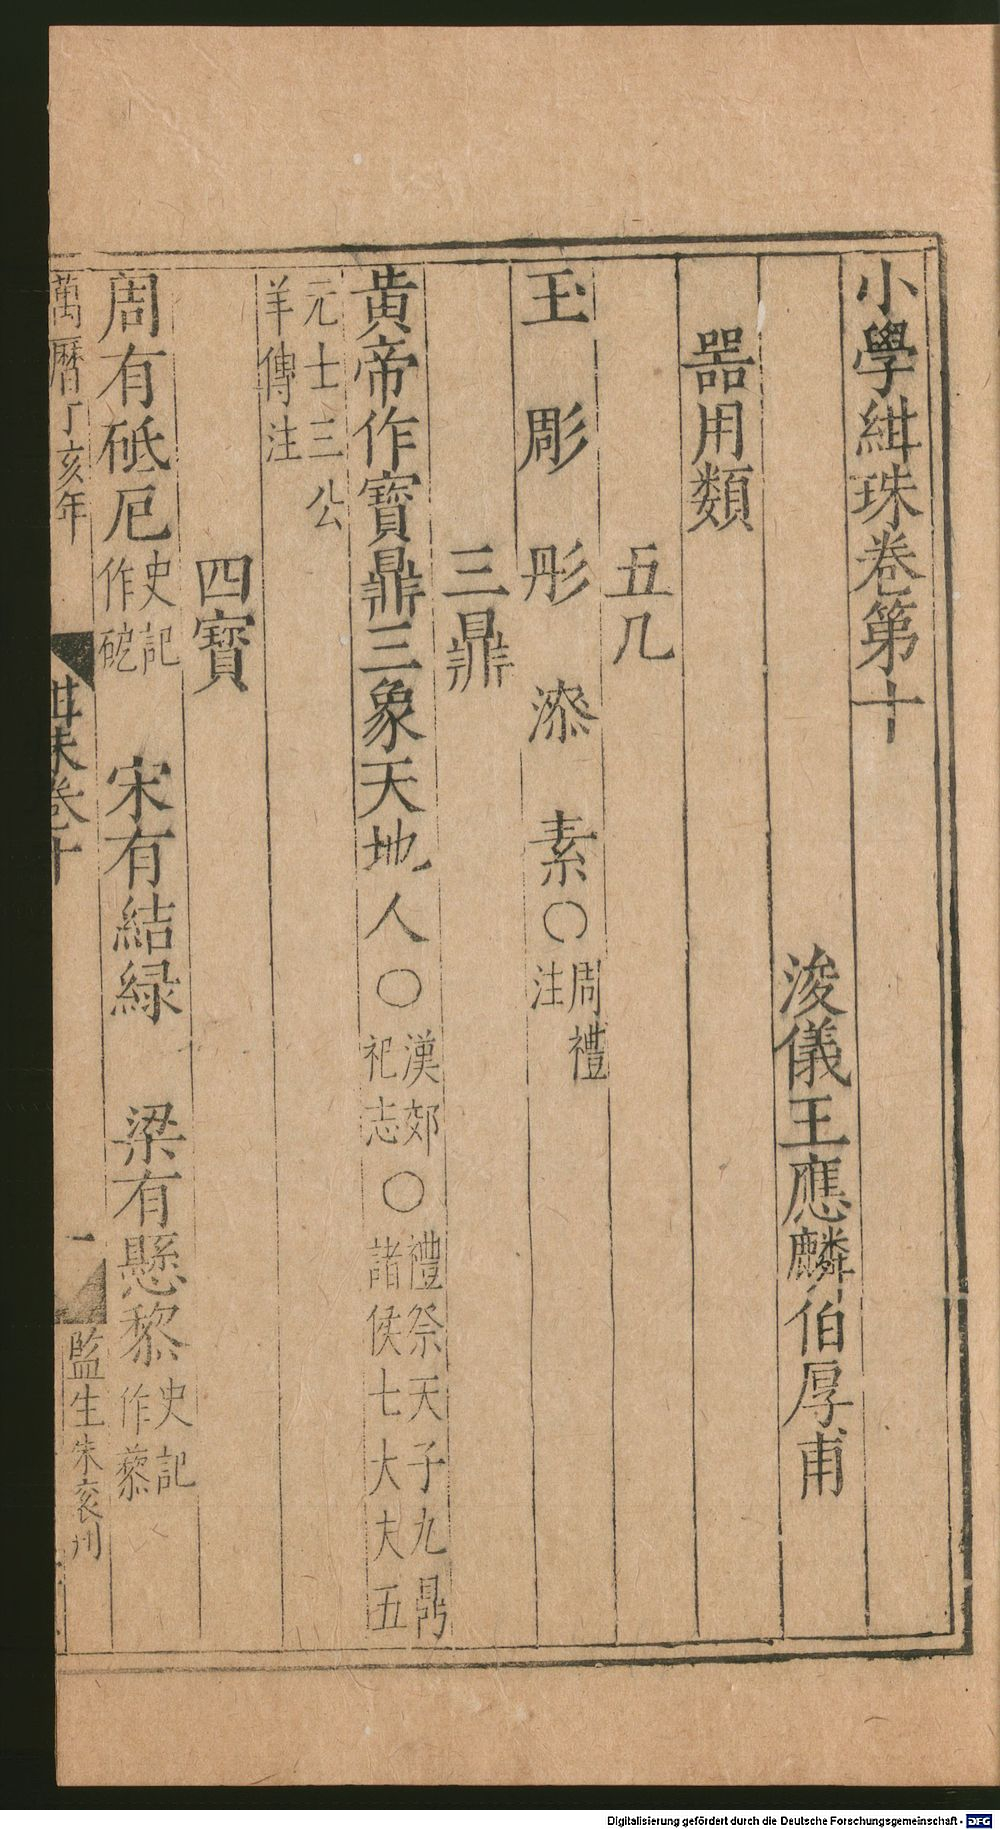 小學紺珠卷第十
浚儀王應麟伯厚甫
器用類
五几
玉 彫 彤 漆 素○周禮注
三鼎
黃帝作寶鼎三象天地人○漢郊祀志○禮祭天子九鼎諸侯七大夫五
元士三公羊傳注
四寶
周有砥厄史記作砨 宋有結緑 梁有懸黎史記作藜
萬曆丁亥年 紺珠卷十 一 監生朱衮刊
Digitalisierung gefördert durch die Deutsche Forschungsgemeinschaft - DFG